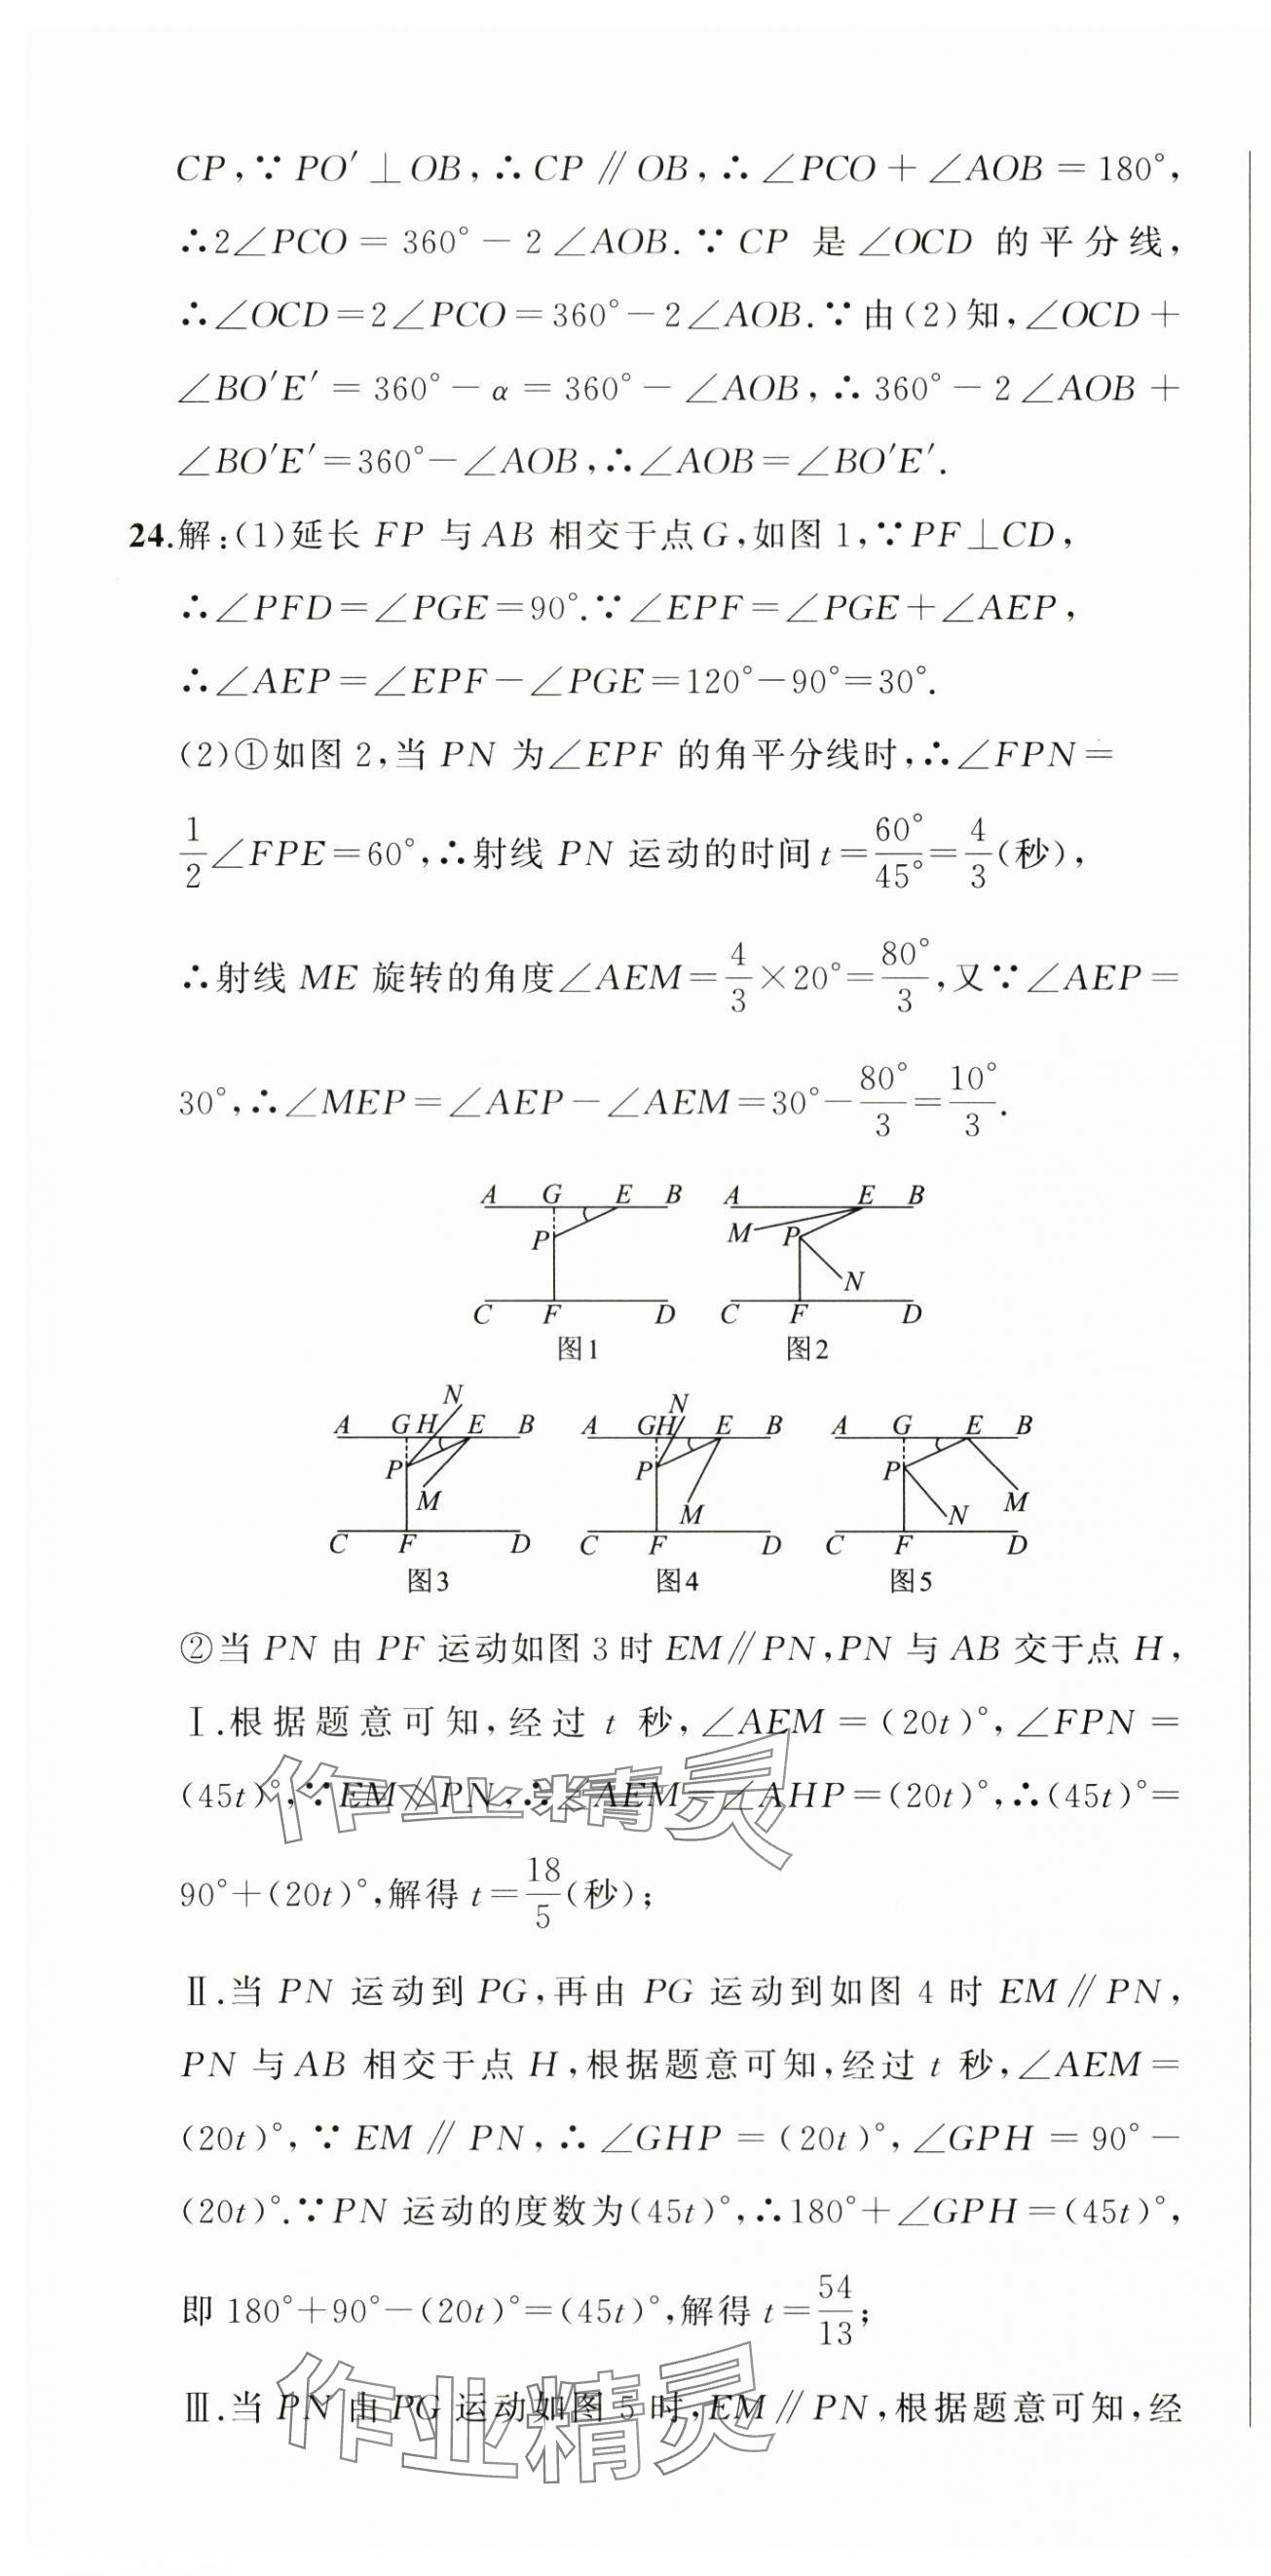 CP,∵PO′⊥OB,∴CP∥OB,∴∠PCO+∠AOB=180°,
∴2∠PCO=360°-2∠AOB.∵CP 是∠OCD 的平分线,
∴∠OCD=2∠PCO=360°-2∠AOB.∵由(2)知,∠OCD+
∠BO′E′=360°-α=360°-∠AOB,∴360°-2∠AOB+
∠BO′E′=360°-∠AOB,∴∠AOB=∠BO′E′.
24.解:(1)延长 FP 与 AB 相交于点 G,如图 1,∵PF⊥CD,
∴∠PFD=∠PGE=90°.∵∠EPF=∠PGE+∠AEP,
∴∠AEP=∠EPF-∠PGE=120°-90°=30°.
(2)①如图 2,当 PN 为∠EPF 的角平分线时,∴∠FPN=
1/2∠FPE=60°,∴射线 PN 运动的时间 t=60°/45°=4/3(秒),
∴射线 ME 旋转的角度∠AEM=4/3×20°=80°/3,又∵∠AEP=
30°,∴∠MEP=∠AEP-∠AEM=30°-80°/3=10°/3.
A G E B A E B
P M P
N
C F D C F D
图1 图2
N N
A G H E B A G H E B A G E B
P P P
M M N M
C F D C F D C F D
图3 图4 图5
②当 PN 由 PF 运动如图 3 时 EM∥PN,PN 与 AB 交于点 H,
Ⅰ.根据题意可知,经过 t 秒,∠AEM=(20t)°,∠FPN=
(45t)°,∵EM∥PN,∴∠AEM=∠AHP=(20t)°,∴(45t)°=
90°+(20t)°,解得 t=18/5(秒);
Ⅱ.当 PN 运动到 PG,再由 PG 运动到如图 4 时 EM∥PN,
PN 与 AB 相交于点 H,根据题意可知,经过 t 秒,∠AEM=
(20t)°,∵EM∥PN,∴∠GHP=(20t)°,∠GPH=90°-
(20t)°.∵PN 运动的度数为(45t)°,∴180°+∠GPH=(45t)°,
即 180°+90°-(20t)°=(45t)°,解得 t=54/13;
Ⅲ.当 PN 由 PG 运动如图 5 时,EM∥PN,根据题意可知,经
作业精灵
作业精灵